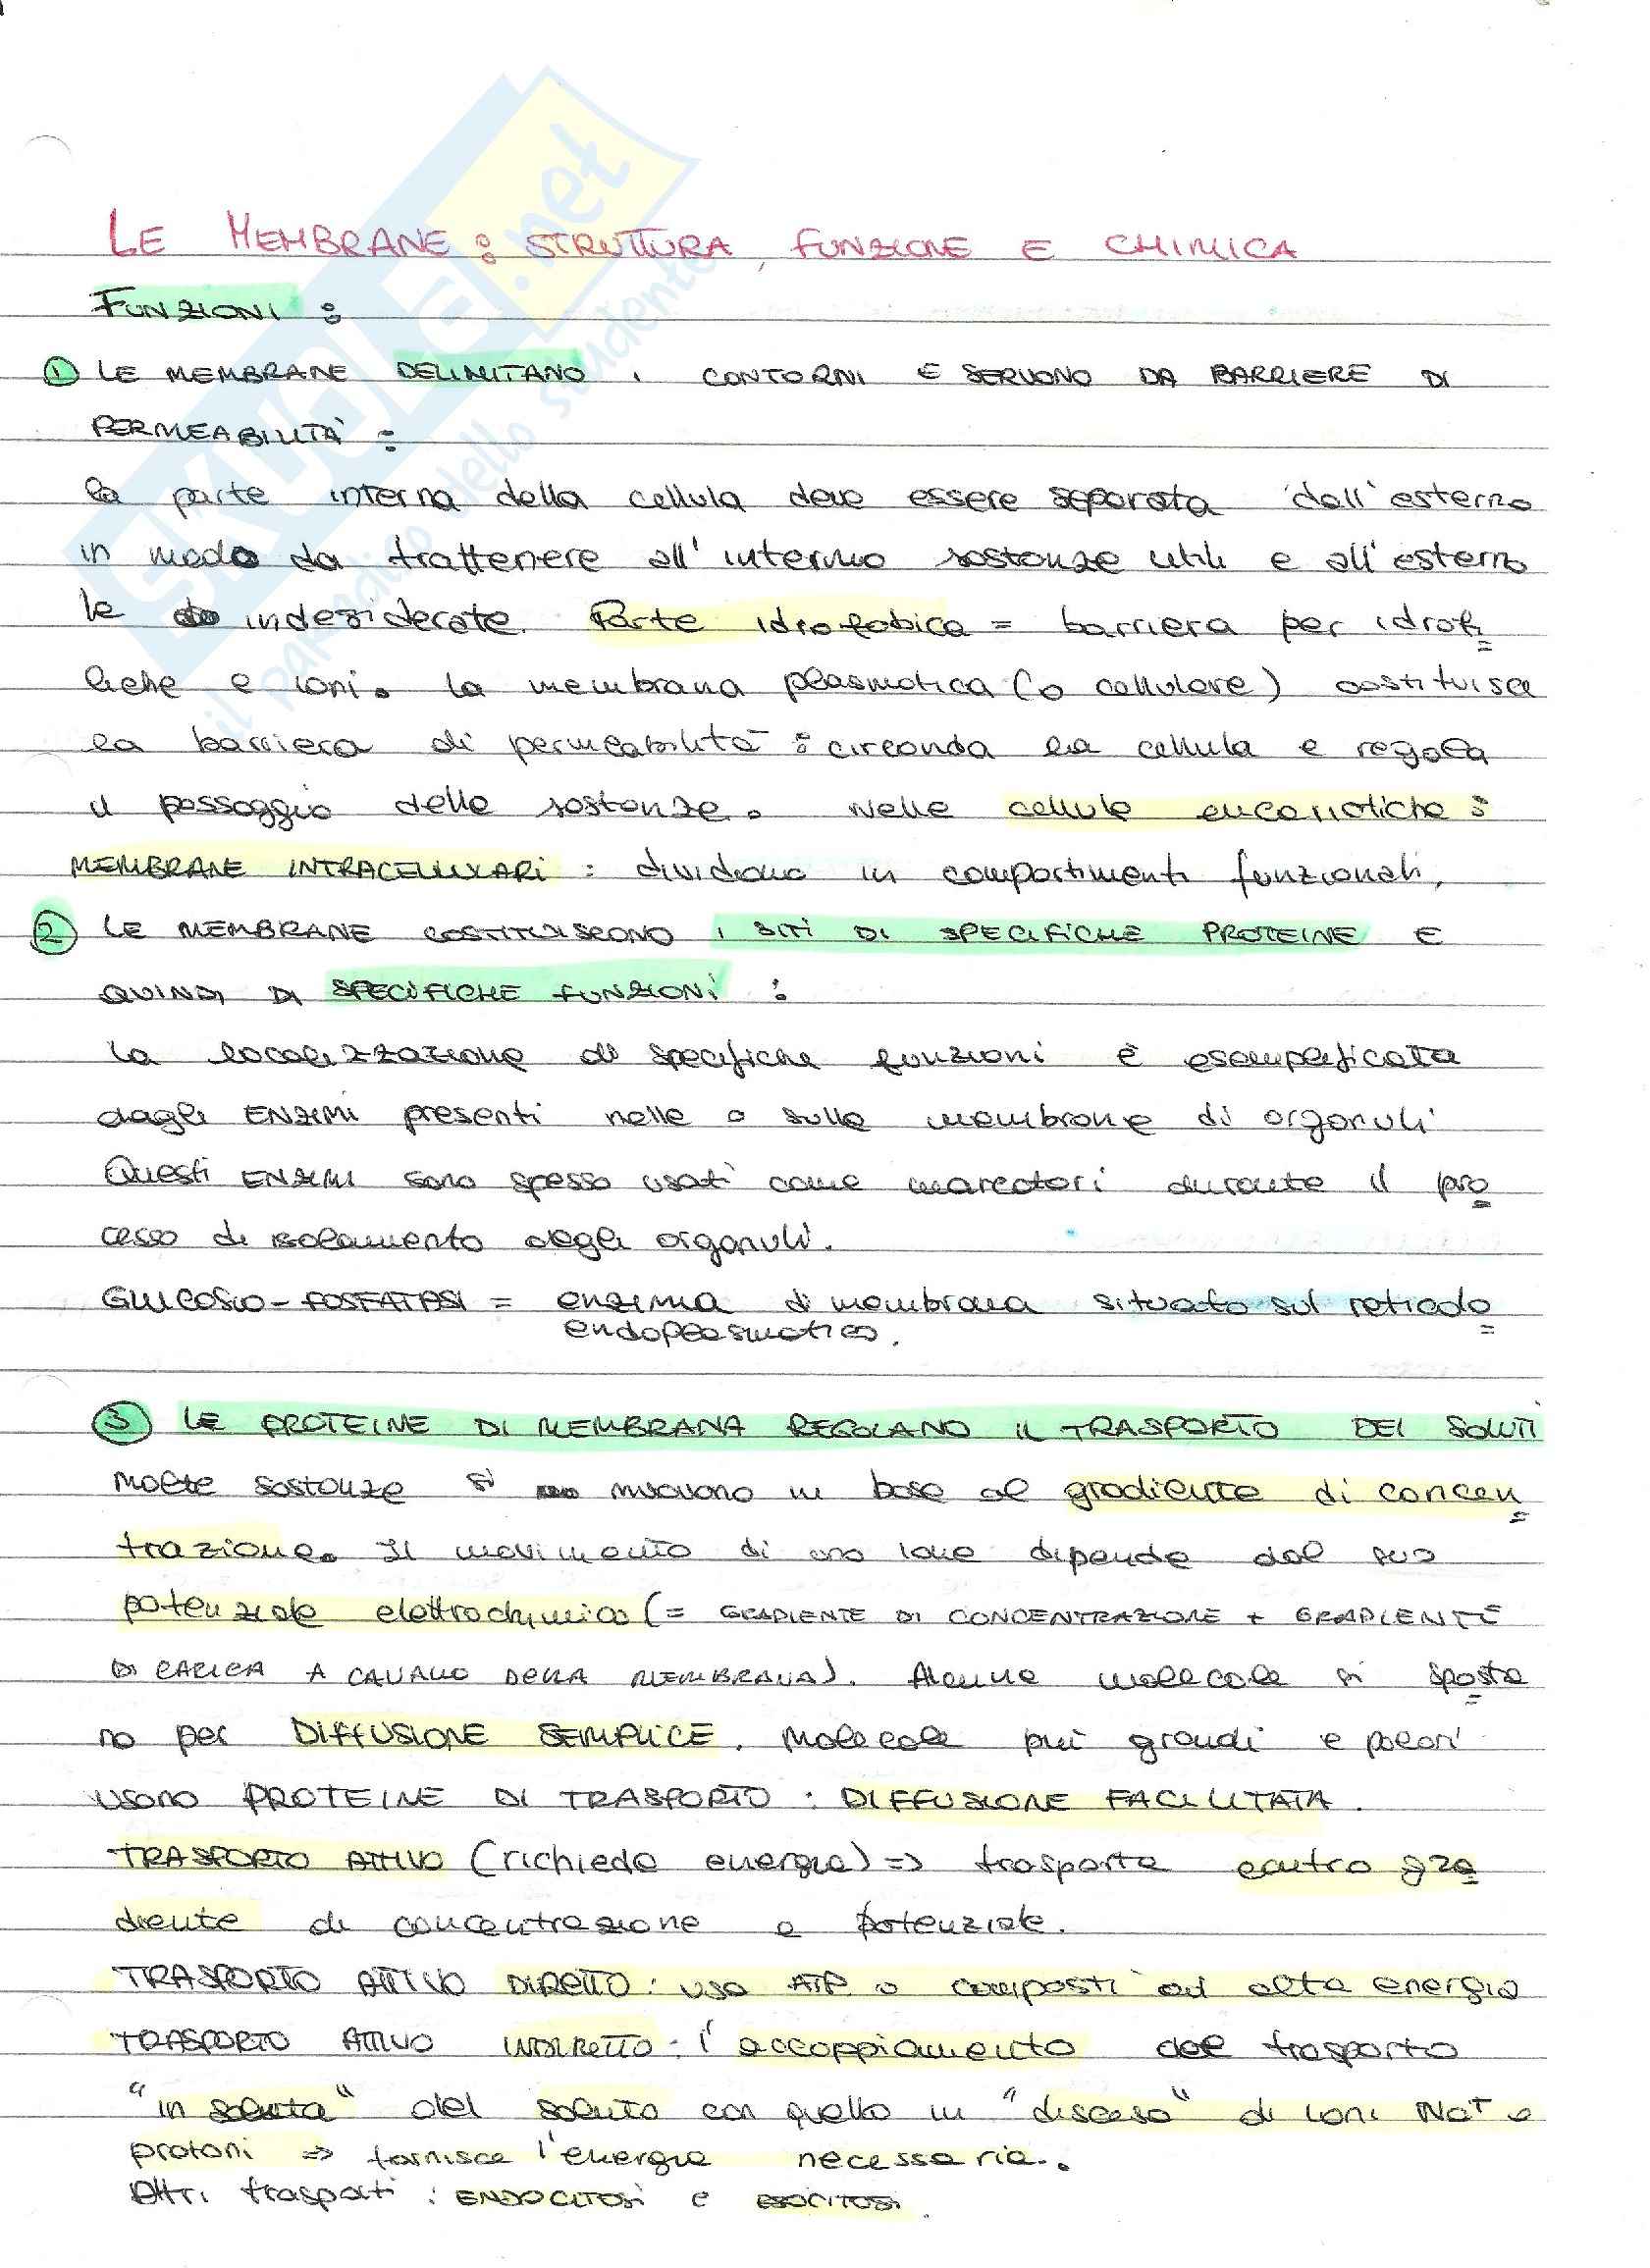 LE MEMBRANE: STRUTTURA, FUNZIONE E CHIMICA
FUNZIONI:
① LE MEMBRANE DELIMITANO I CONTORNI E SERVONO DA BARRIERE DI
PERMEABILITÀ:
la parte interna della cellula deve essere separata dall'esterno
in modo da trattenere all'interno sostanze utili e all'esterno
le indesiderate. Parte idrofobica = barriera per idrofi=
liche e ioni. La membrana plasmatica (o cellulare) costituisce
la barriera di permeabilità: circonda la cellula e regola
il passaggio delle sostanze. Nelle cellule eucariotiche:
MEMBRANE INTRACELLULARI: dividono in compartimenti funzionali.
② LE MEMBRANE COSTITUISCONO I SITI DI SPECIFICHE PROTEINE E
QUINDI DI SPECIFICHE FUNZIONI:
La localizzazione di specifiche funzioni è esemplificata
dagli ENZIMI presenti nelle o sulle membrane di organuli
Questi ENZIMI sono spesso usati come marcatori durante il pro=
cesso di isolamento degli organuli.
GLUCOSIO-FOSFATASI = enzima di membrana situato sul reticolo=
endoplasmatico.
③ LE PROTEINE DI MEMBRANA REGOLANO IL TRASPORTO DEI SOLUTI
Molte sostanze si muovono in base al gradiente di concen=
trazione. Il movimento di uno ione dipende dal suo
potenziale elettrochimico (= GRADIENTE DI CONCENTRAZIONE + GRADIENTE
DI CARICA A CAVALLO DELLA MEMBRANA). Alcune molecole si sposta=
no per DIFFUSIONE SEMPLICE. Molecole più grandi e polari
usano PROTEINE DI TRASPORTO: DIFFUSIONE FACILITATA.
TRASPORTO ATTIVO (richiede energia) => trasporta contro gra=
diente di concentrazione e potenziale.
TRASPORTO ATTIVO DIRETTO: usa ATP o composti ad alta energia
TRASPORTO ATTIVO INDIRETTO: l'accoppiamento del trasporto
"in salita" del soluto con quello in "discesa" di ioni Na⁺ o
protoni => fornisce l'energia necessaria.
Altri trasporti: ENDOCITOSI e ESOCITOSI.
SKUOLA.net
il paradiso dello studente